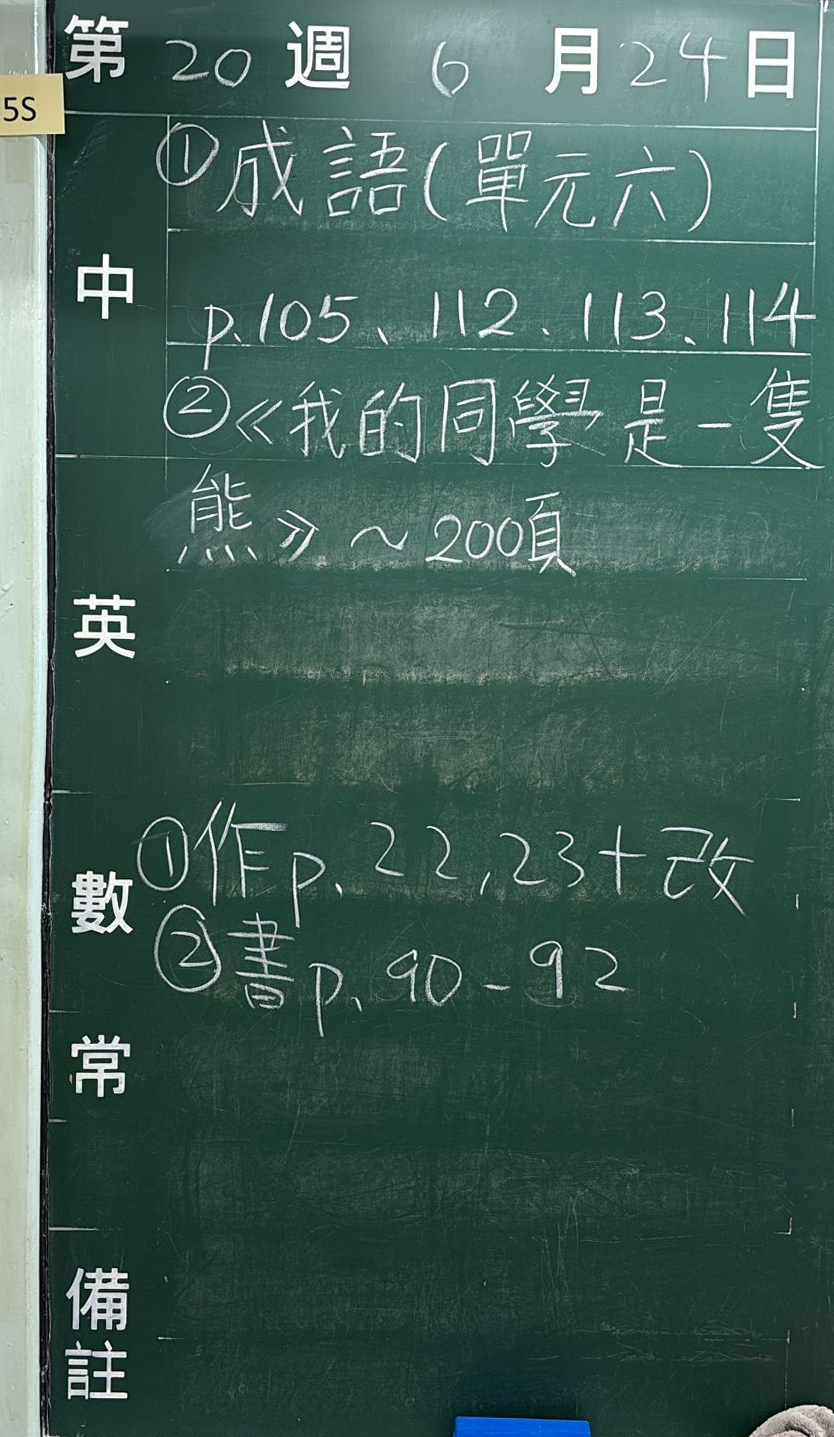 第 20 週 6 月 24 日
5S
中
① 成語(單元六)
p.105、112、113、114
② 《我的同學是一隻
熊》~200頁
英
數
① 作p.22,23+改
② 書p.90-92
常
備註